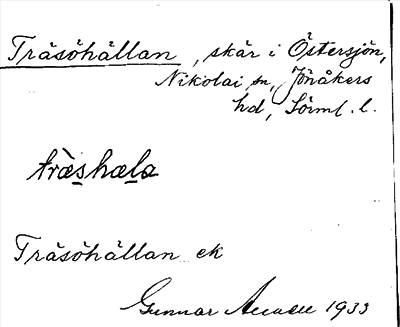 Träsöhällan, skär i Östersjön,
Nikolai sn, Jönåkers
hd, Sörml. l.
tràshæla
Träsöhällan ek
Gunnar 1933